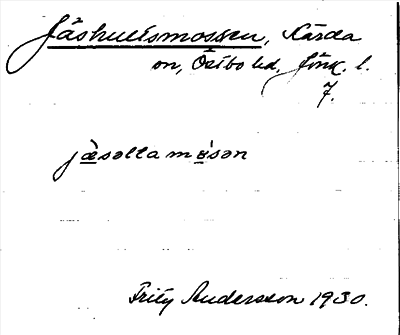 Jäshultsmossen, Kärda
sn, Östbo hd, Jönk. l.
7.
jæ̀səltamɷ̀sən
Fritz Andersson 1930.